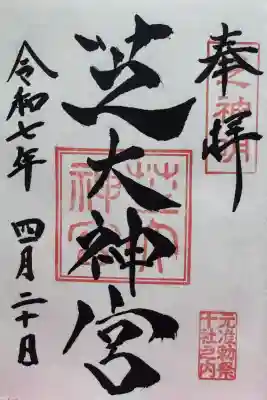 奉拝
芝之神明
芝大神宮
芝大神宮
元准勅祭
十社之内
令和七年 四月二十日